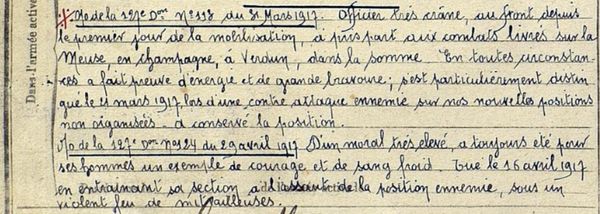 Dans l'armée active
O de la 127e Don No 118 du 31 Mars 1917. Officier très crâne, au front depuis
le premier jour de la mobilisation, a pris part aux combats livrés sur la
Meuse, en champagne, à Verdun, dans la somme. En toutes circonstan-
ces a fait preuve d'énergie et de grande bravoure; s'est particulièrement distin
gué le 11 mars 1917 lors d'une contre attaque ennemie sur nos nouvelles positions
non organisées - a conservé la position.
O de la 127e Don No 124 du 29 avril 1917 D'un moral très elevé, a toujours été pour
ses hommes un exemple de courage et de sang froid. Tué le 16 avril 1917
en entrainant sa section à l'assaut de la position ennemie, sous un
violent feu de mitrailleuses.